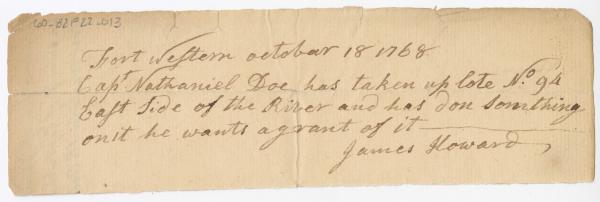 60-B2F22-013
Fort Western october 18 1768
Capt Nathaniel Doe has taken up lote No 94
East Side of the River and has don Somthing
on it he wants a grant of it
James Howard